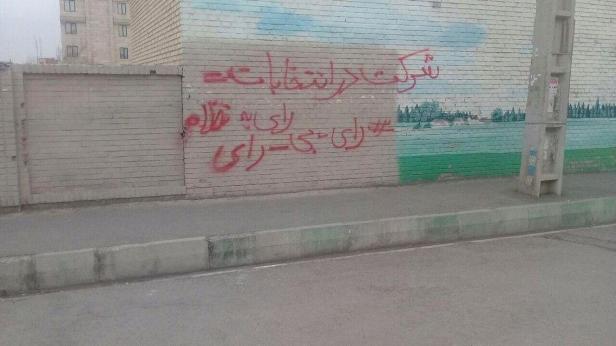 شرکت در انتخابات =
رای به نظام
# رای - بی - رای